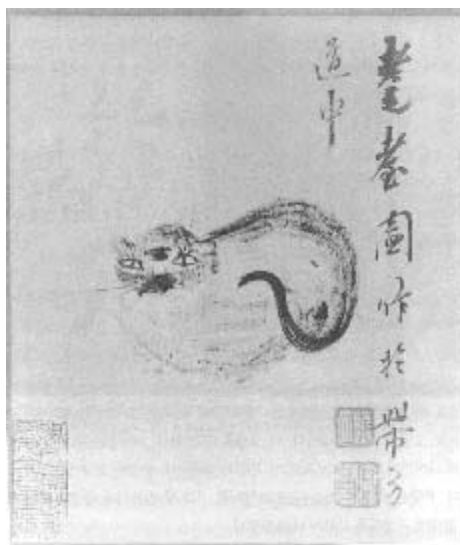 耄耋圖作於帶方
道中